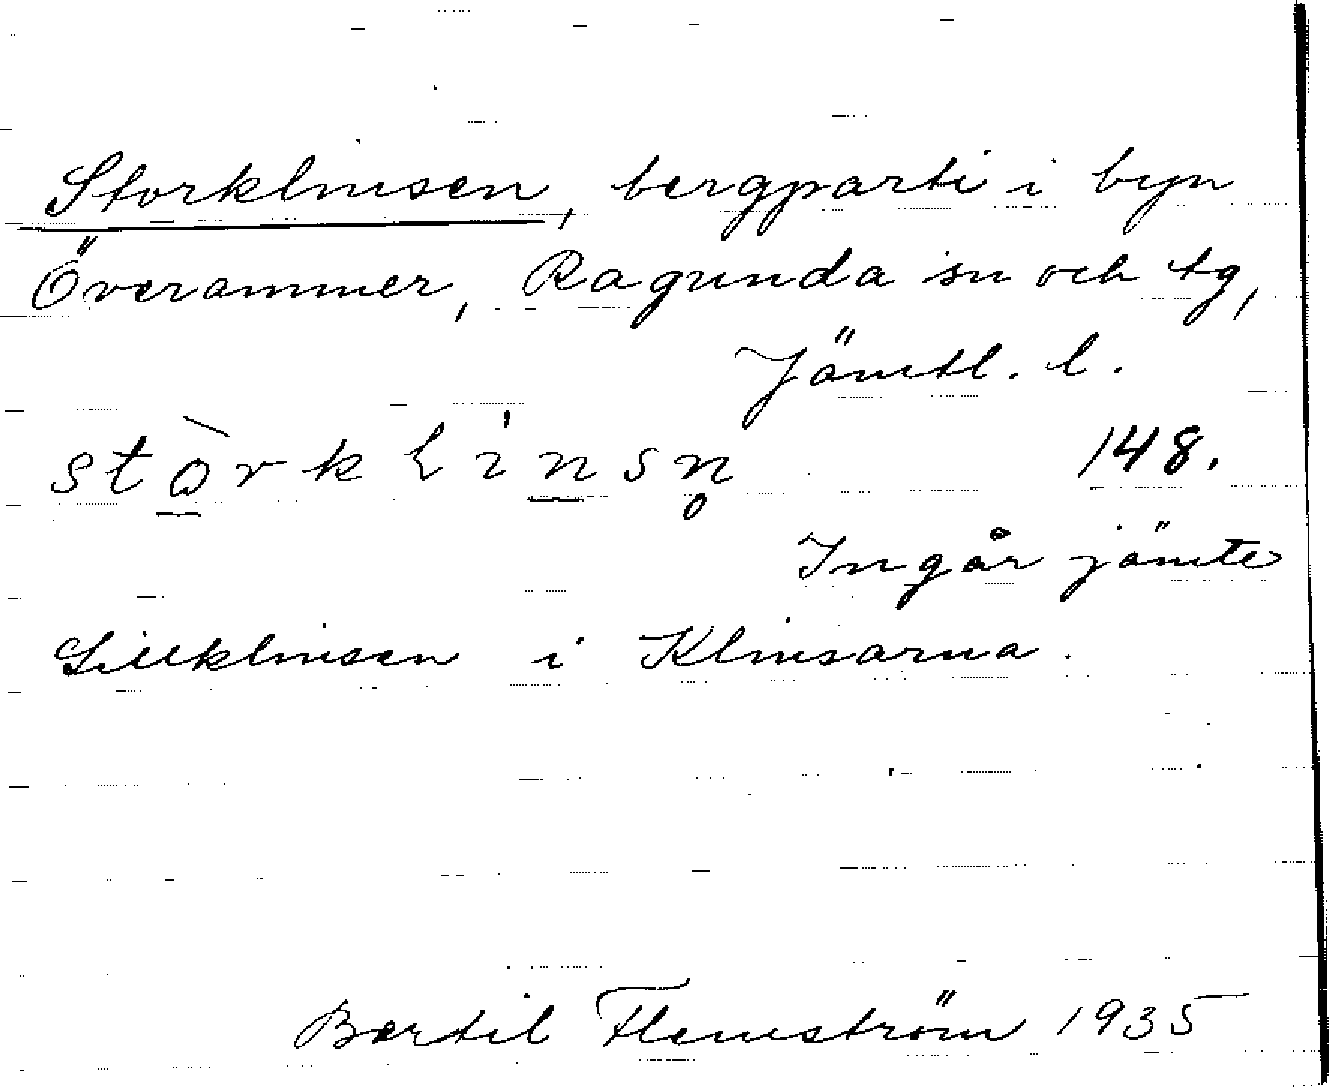 Storklinsen, bergparti i byn
Överammer, Ragunda sn och tg,
Jämtl. l.
stòrklinsn̥ 148.
Ingår jämte
Lillklinsen i Klinsarna.
Bertil Flemström 1935